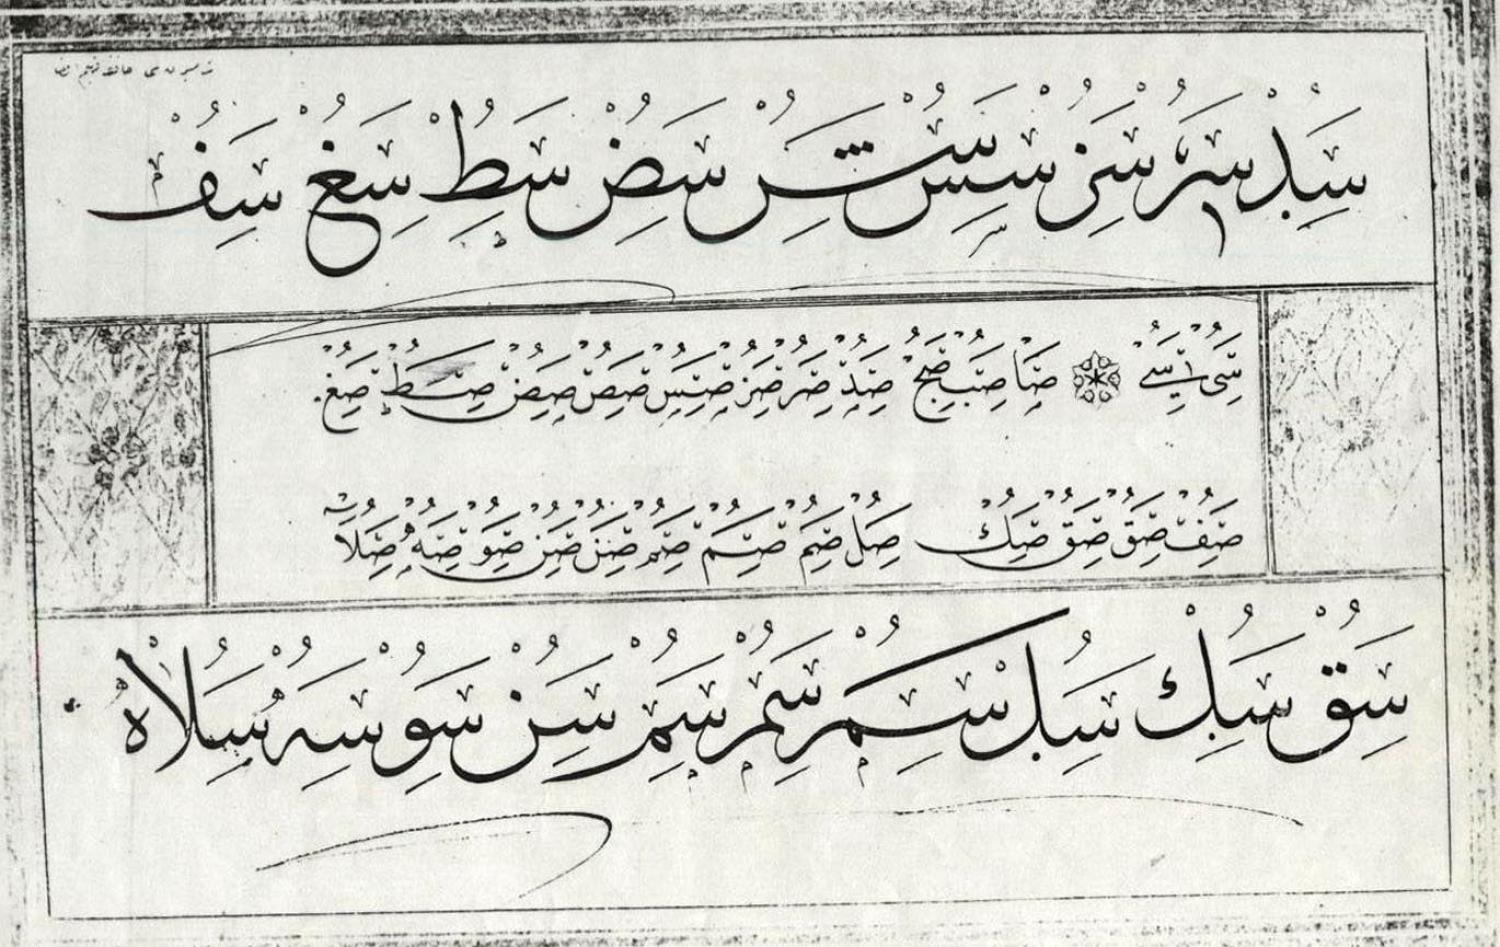 سد سر سز سس سش سض سط سغ سف
سى سے صا صب صج صد صر صز صس صص صض صط صغ
صف صق صق صك صل صم صم صم صن صن صو صه صلا
سق سك سل سم سم سم سن سو سه سلاه